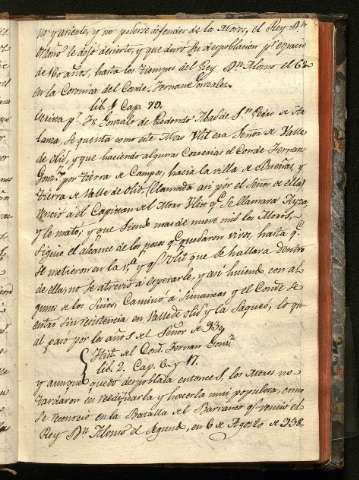 no y ariento, y no pudiese defender de los Moros, el Rey Dn.
lo dejo decierto, y que duro su despoblacion pr. espacio
de años, hasta los tiempos del Rey Dn. Alonso el 6º
en la Coronica del Conde Fernan Gonzalez
lib. 1 Cap. 70.
Fr. Gonzalo de Redondo Abad de Sn. Pedro de
se quenta como este Moro Ulit era Señor de Valle
de Olid, y que haciendo algunas Correrias el Conde Fernan
Gonz. por tierra de Campos, hacia la villa de Dueñas, y
tierra de Valle de Olit (llamada asi por el Señor de ella)
vencio a el Capitan al Moro Ulit qe. se llamava
y lo mato; y que siendo mas de nueve mil los Moros,
siguio el alcance de los pocos qe. quedaron vivos, hasta qe.
se metieron en la Va. y qe. Ulit que se hallava dentro
de ella no se atrevio a esperarle, y asi huiendo con al-
gunos de los suios, Camino a Simancas y el Conde se
entro sin resistencia en Valle de Olid y la Saqueo, lo qe.
al paso por la año S. el Señor de 939
Hist. al Cond. Fernan Gonz.
lib. 2. Cap. 6. y 17.
y aunque quedo despoblada entonces, los Moros no
tardaron en reedificarla y hacerla mui populosa, como
se reconocio en la Batalla de el Barranco qe. vencio el
Rey Dn. Alonso de Agosto, en 6 de Agosto de 938.